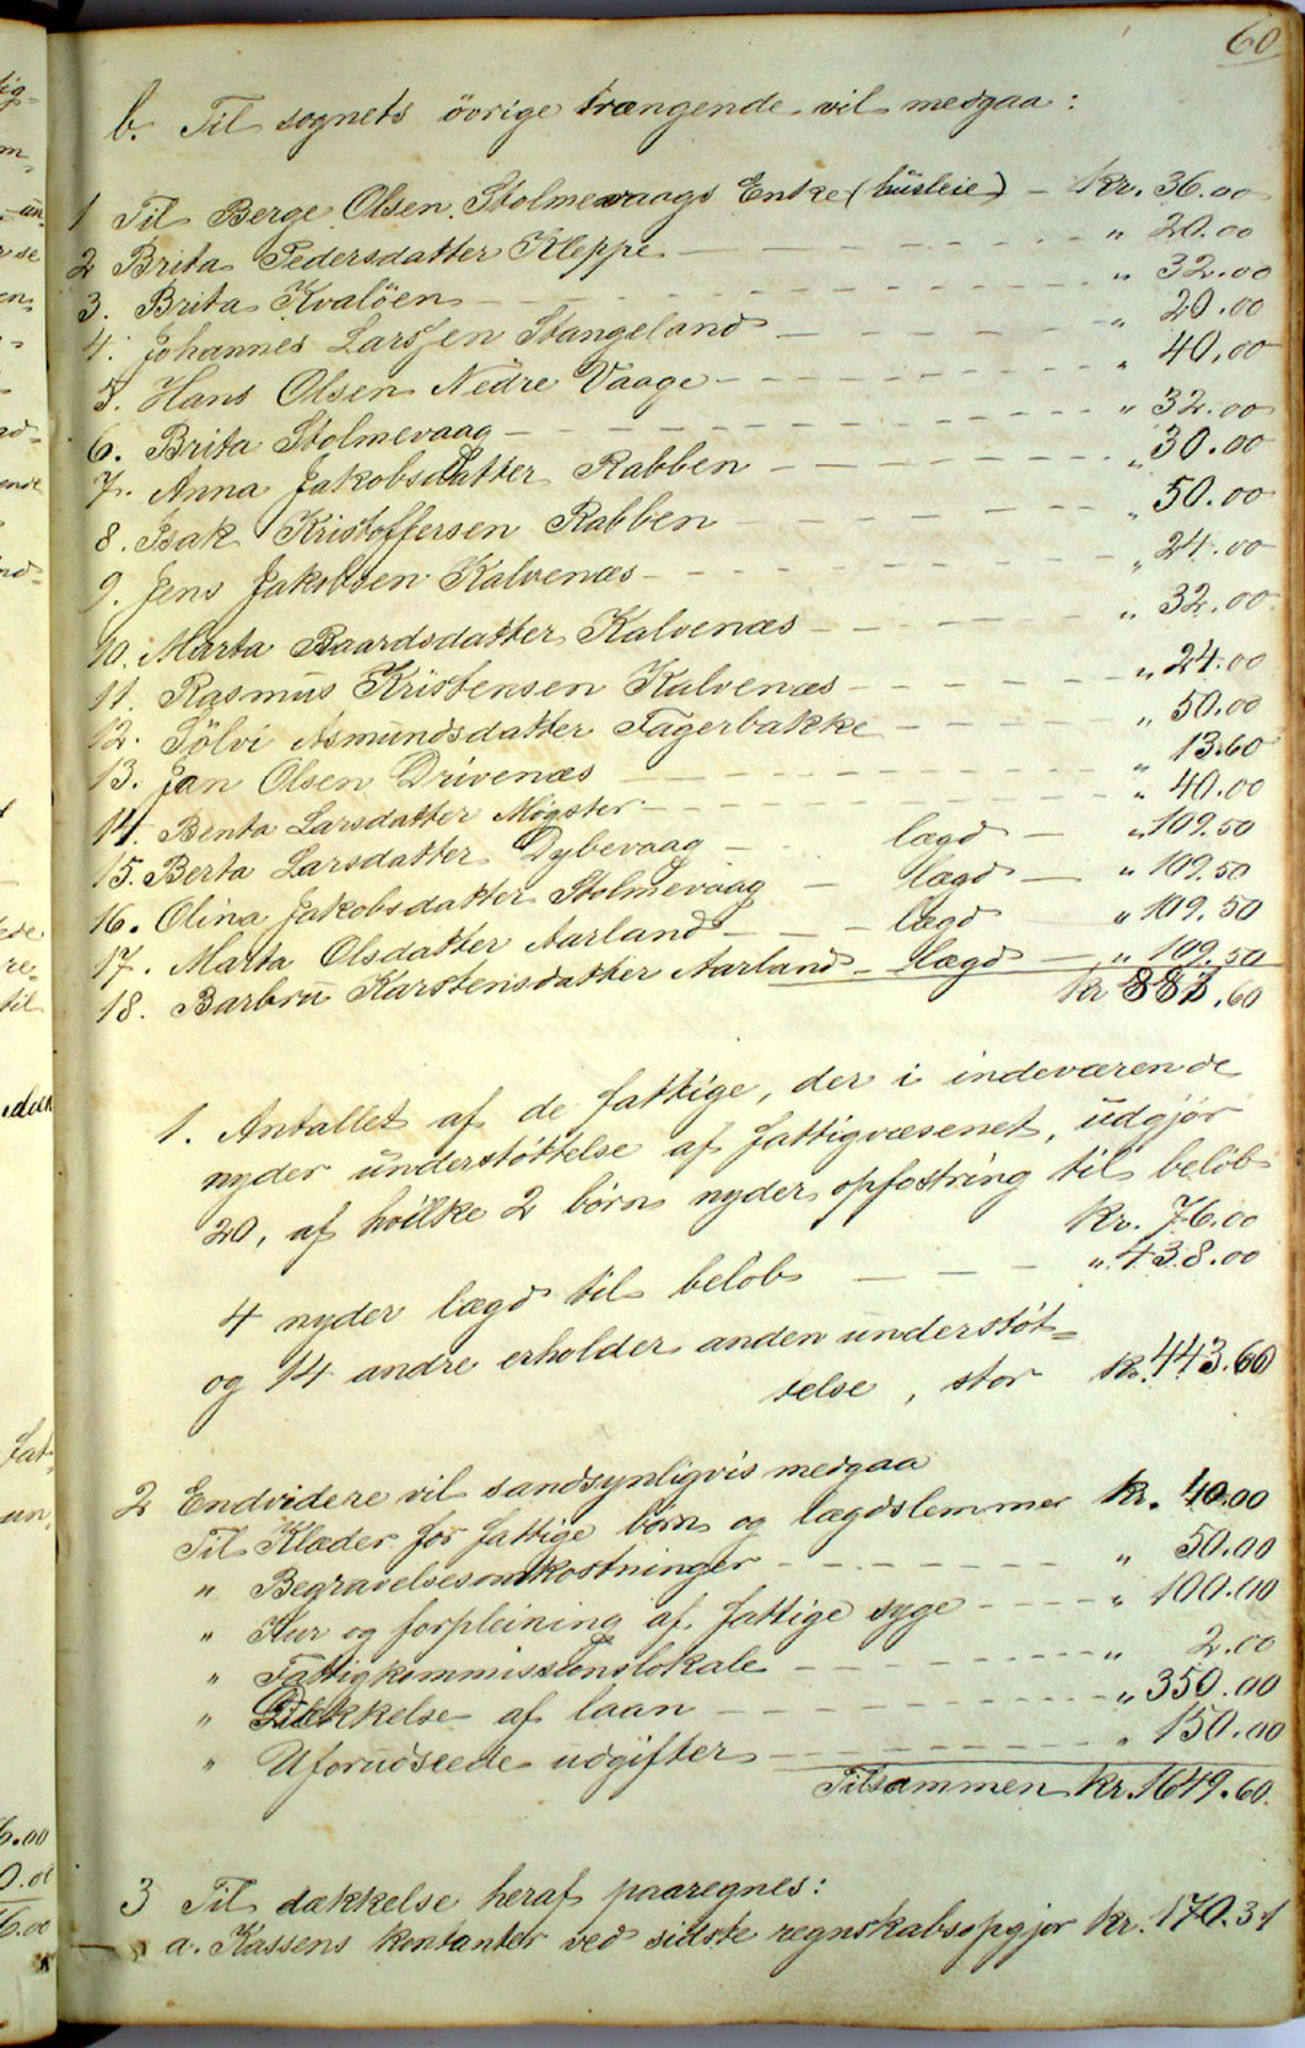 60
b. Til sognets övrige trængende vil medgaa:
1 Til Berge Olsen Stolmevaags Enke (husleie) - kr. 36.00
2 Brita Pedersdatter Kleppe - - - - " 20.00
3. Brita Kvalöen - - - - " 32.00
4. Johannes Larssen Stangeland - - - - " 20.00
5. Hans Olsen Nedre Vaage - - - - " 40.00
6. Brita Stolmevaag - - - - " 32.00
7. Anna Jakobsdatter Rabben - - - - " 30.00
8. Isak Kristoffersen Rabben - - - - " 50.00
9. Jens Jakobsen Kalvenæs - - - - " 24.00
10. Marta Baardsdatter Kalvenæs - - - - " 32.00
11. Rasmus Kristensen Kalvenæs - - - - " 24.00
12. Sölvi Asmundsdatter Fagerbakke - - - - " 50.00
13. Jan Olsen Drivenæs - - - - " 13.60
14. Benta Larsdatter Møgster - - - - " 40.00
15. Berta Larsdatter Dybevaag - - lægd - " 109.50
16. Olina Jakobsdatter Stolmevaag - lægd - " 109.50
17. Marta Olsdatter Aarland - - - lægd - " 109.50
18. Barbru Karstensdatter Aarland - lægd - " 109.50
kr 881.60
1. Antallet af de fattige, der i indeværende
nyder understöttelse af fattigvæsenet, udgjör
20, af hvilke 2 börn nyder opfostring til belöb
kr. 76.00
4 nyder lægd til belöb - - - " 438.00
og 14 andre erholder anden understöt=
telse, stor kr. 443.60
2 Endvidere vil sandsynligvis medgaa
Til Klæder for fattige börn og lægdslemmer kr. 40.00
" Begravelsesomkostninger - - - - " 50.00
" Kur og forpleining af fattige syge - - - - " 100.00
" Fattigkommissionslokale - - - - " 2.00
" Dækkelse af laan - - - - " 350.00
" Uforudseede udgifter - - - - " 150.00
Tilsammen kr. 1649.60.
3 Til dækkelse heraf paaregnes:
a. Kassens kontanter ved sidste regnskabsopgjør kr. 170.31